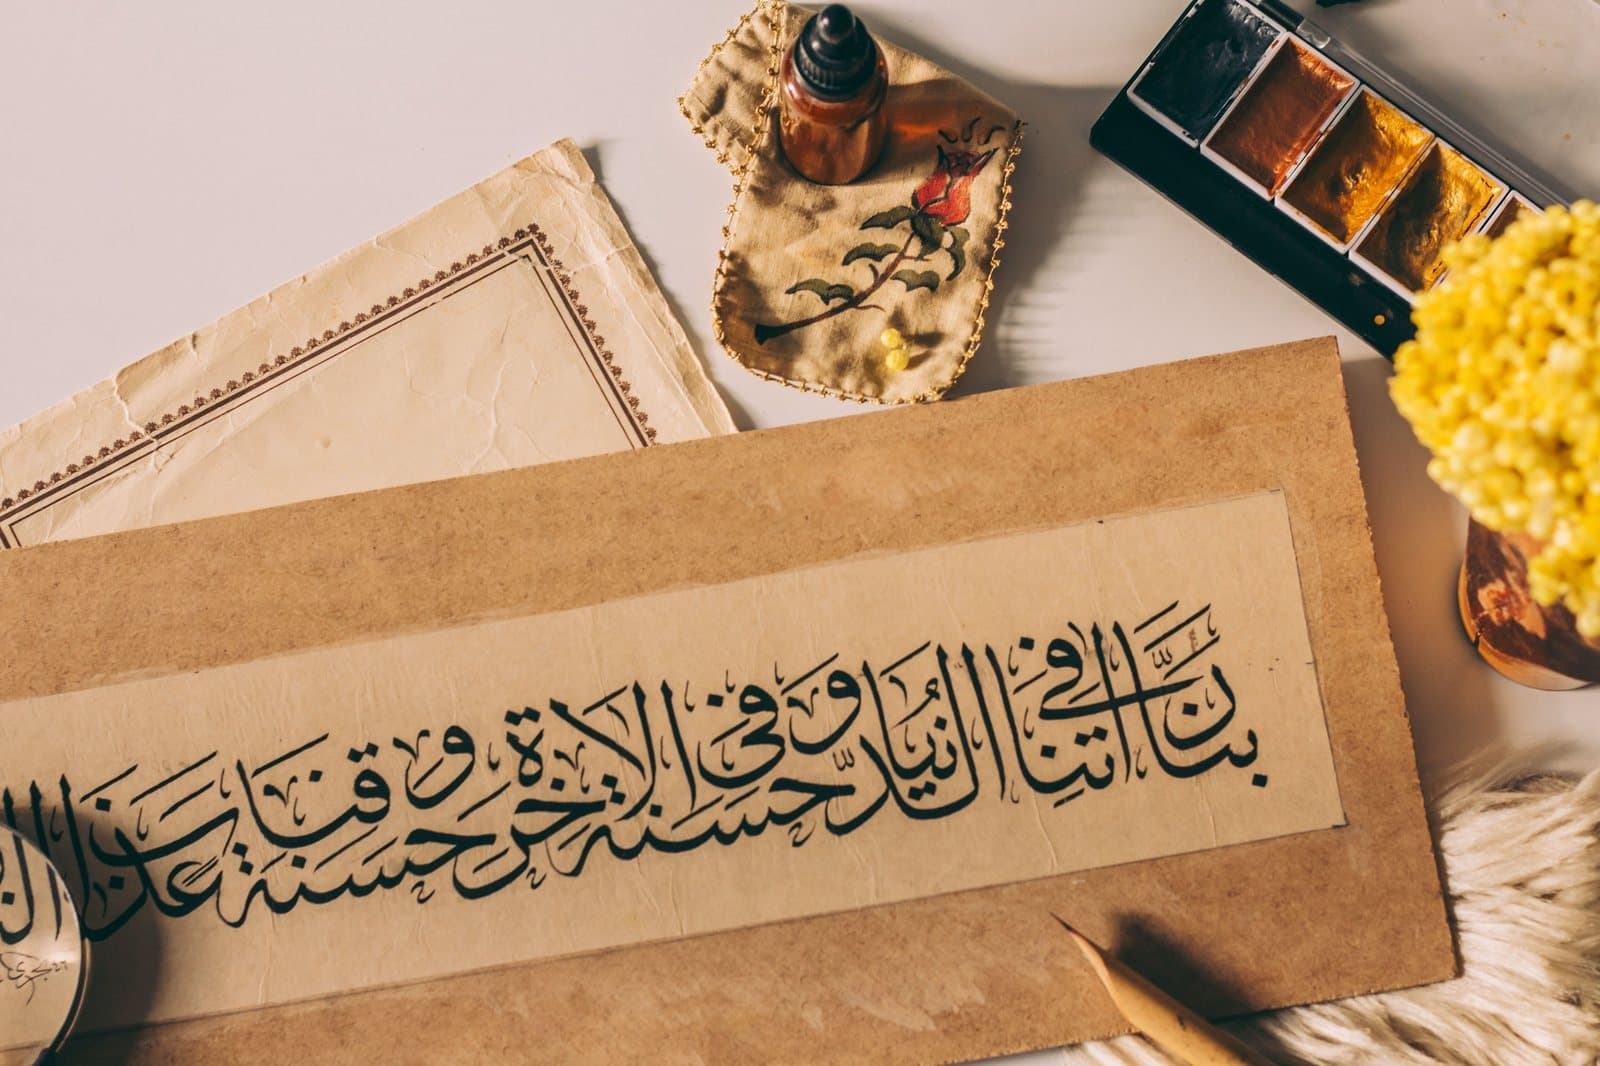 ربنا اتنا في الدنيا حسنة وفي الاخرة حسنة وقنا عذاب